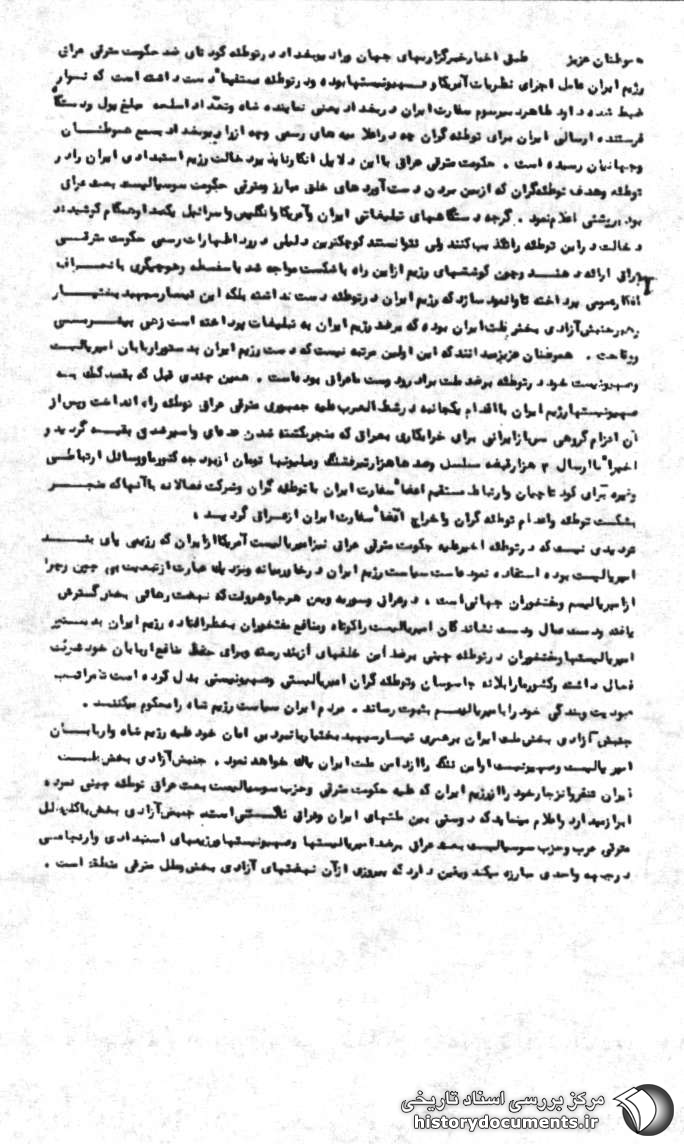 هموطنان عزیز طبق اخبار خبرگزاریهای جهان و رادیو بغداد در توطئه کودتای ضد حکومت مترقی عراق
رژیم ایران عامل اجرای نظریات آمریکا و صهیونیستها بوده و در توطئه مستقیماً دست داشته است که نوار
ضبط شده داود طاهر دبیر سوم سفارت ایران در بغداد یعنی نماینده شاه و تعداد اسلحه مبلغ پول و دستگاه
فرستنده ارسالی ایران برای توطئه گران چه در اعلامیه های رسمی و چه از رادیو بغداد بسمع هموطنان
و جهانیان رسیده است . حکومت مترقی عراق با این دلایل انکار ناپذیر دخالت رژیم استبدادی ایران را در
توطئه و هدف توطئه گران که از بین بردن دست آوردهای خلق مبارز و مترقی حکومت سوسیالیست بعث عراق
بود بروشنی اعلام نمود . گرچه دستگاههای تبلیغاتی ایران و آمریکا و انگلیس و اسرائیل یکصدا و هنگام کوشیدند
دخالت در این توطئه را تکذیب کنند ولی نتوانستند کوچکترین دلیلی در رد اظهارات رسمی حکومت مترقی
عراق ارائه دهند و چون کوششهای رژیم از این راه با شکست مواجه شد با سفسطه و هوچیگری با انحراف
افکار عمومی پرداخته تا وانمود سازد که رژیم ایران در توطئه دست نداشته بلکه این تیمسار سپهبد بختیار
رهبر جنبش آزادی بخش ملت ایران بوده که بر ضد رژیم ایران به تبلیغات پرداخته است زهی بیشرمی
و وقاحت . هموطنان عزیز میدانند که این اولین مرتبه نیست که دست رژیم ایران بدستور اربابان امپریالیست
و صهیونیست خود در توطئه بر ضد ملت برادر و دوست ما عراق بوده است . همین چندی قبل که بقصد کمک به
صهیونیستها رژیم ایران با اقدام یکجانبه در شط العرب علیه جمهوری مترقی عراق توطئه راه انداخت و پس از
آن اعزام گروهی سرباز ایرانی برای خرابکاری بعراق که منجر بکشته شدن عده ای و اسیر شدن بقیه گردید و
اخیراً با ارسال ۳ هزار قبضه مسلسل و صدها هزار تیر فشنگ و میلیونها تومان از بودجه کشور ما و وسائل ارتباطی
و غیره برای کودتاچیان و ارتباط مستقیم اعضاً سفارت ایران با توطئه گران و شرکت فعالانه با آنها که منجر
بشکست توطئه و اعدام توطئه گران و اخراج اعضاً سفارت ایران از عراق گردید .
تردیدی نیست که در توطئه اخیر علیه حکومت مترقی عراق نیز امپریالیست آمریکا از ایران که رژیمی پای بند
امپریالیست بوده استفاده نموده است سیاست رژیم ایران در خاورمیانه و نزدیک عبارت از تبعیت بی چون و چرا
از امپریالیسم و مفتخوران جهانی است . در عراق و سوریه و یمن هر جا و هر وقت که نهضت رهائی بخش گسترش
یافته و دست عمال و دست نشاندگان امپریالیست را کوتاه و منافع مفتخوران بخطر افتاده رژیم ایران بدستور
امپریالیستها و مفتخوران در توطئه چینی بر ضد این خلقهای از بند رسته و برای حفظ منافع اربابان خود شرکت
فعال داشته و کشور ما را بلانه جاسوسان و توطئه گران امپریالیستی و صهیونیستی بدل کرده است تا مراتب
عبودیت و بندگی خود را با امپریالیسم بثبوت رساند . مردم ایران سیاست رژیم شاه را محکوم میکنند .
جنبش آزادی بخش ملت ایران برهبری تیمسار سپهبد بختیار با نبرد بی امان خود علیه رژیم شاه و اربابان
امپریالیست و صهیونیست او این ننگ را از دامن ملت ایران پاک خواهد نمود . جنبش آزادی بخش ملت
ایران تنفر و انزجار خود را از رژیم ایران که علیه حکومت مترقی و حزب سوسیالیست بعث عراق توطئه چینی نموده
ابراز میدارد و اعلام مینماید که دوستی بین ملتهای ایران و عراق ناگسستنی است . جنبش آزادی بخش با کلیه ملل
مترقی عرب و حزب سوسیالیست بعث عراق بر ضد امپریالیستها و صهیونیستها و رژیمهای استبدادی و ارتجاعی
در جبهه واحدی مبارزه میکند و یقین دارد که پیروزی از آن نهضتهای آزادی بخش و ملل مترقی منطقه است .
مرکز بررسی اسناد تاریخی
historydocuments.ir